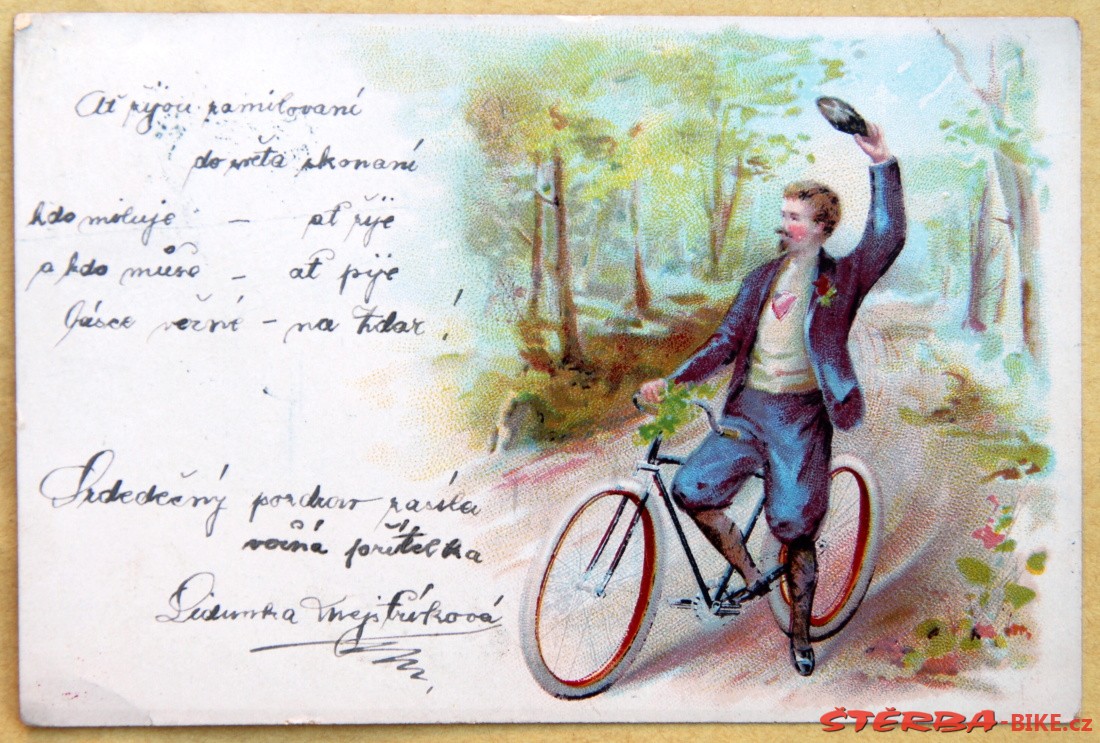 Ať žijou zamilovaní
do světa skonaní
kdo miluje – ať žije
a kdo může – ať pije
lásce věrné – na zdar!
Srdedečný pozdrav zasílá
věrná přítelka
Lidunka Mejstříková
ŠTĚRBA-BIKE.cz